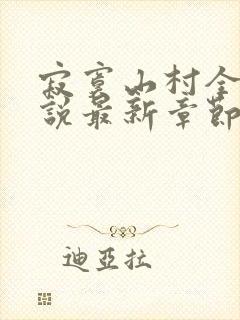 寂寞山村全
說最新章節
迪亞拉